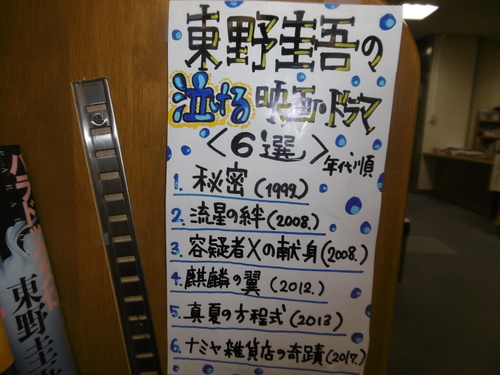 東野圭吾の
泣ける映画・ドラマ
〈6選〉年代順
1. 秘密(1999.)
2. 流星の絆(2008.)
3. 容疑者Xの献身(2008.)
4. 麒麟の翼(2012.)
5. 真夏の方程式(2013)
6. ナミヤ雑貨店の奇蹟(2017.)
東野圭